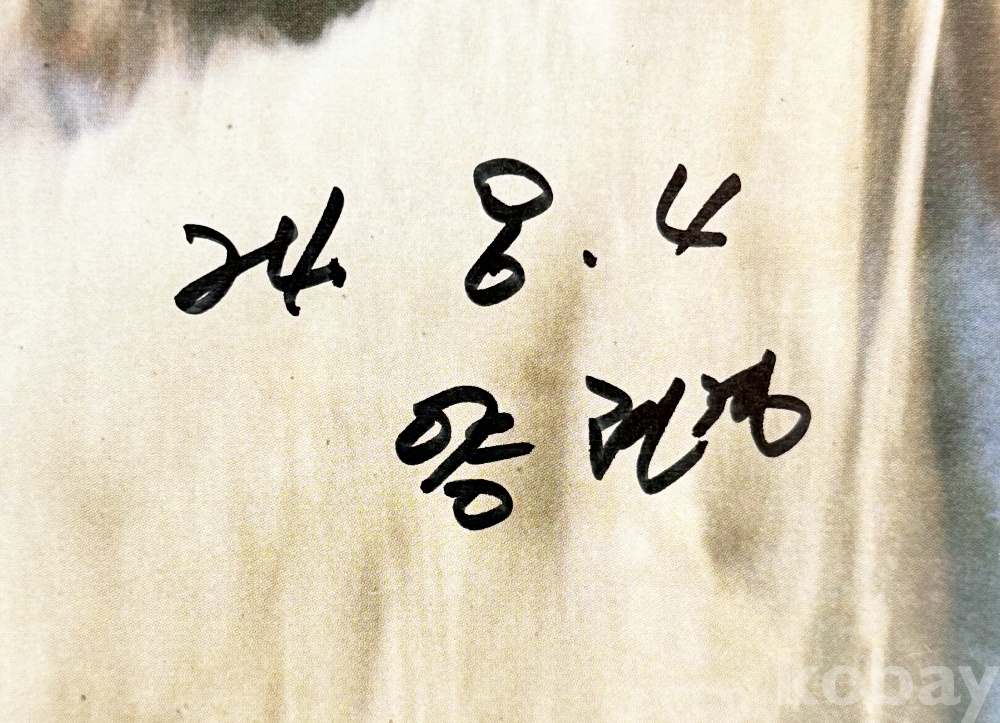 24 8.4
양
kobay